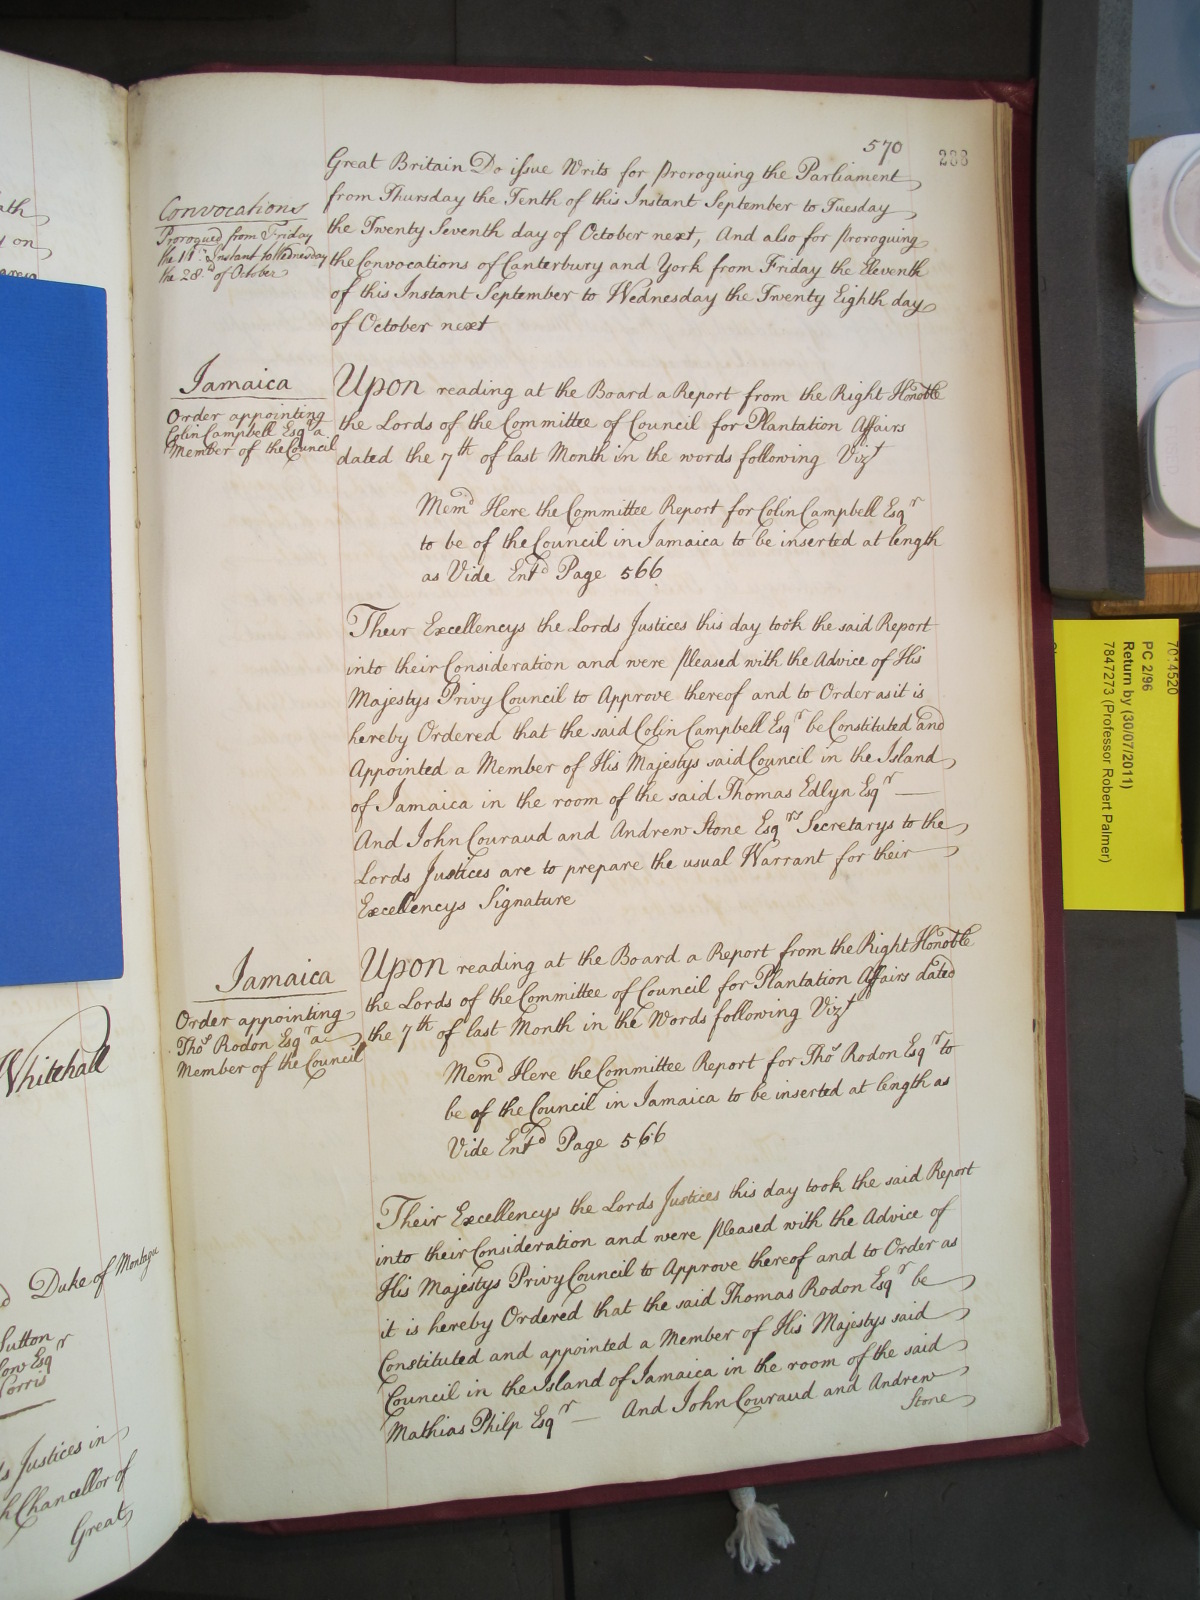 570
288
Great Britain Do issue Writs for Proroguing the Parliament
from Thursday the Tenth of this Instant September to Tuesday
the Twenty Seventh day of October next, And also for Proroguing
the Convocations of Canterbury and York from Friday the Eleventh
of this Instant September to Wednesday the Twenty Eighth day
of October next
Convocations
Prorogued from Friday
the 11th Instant to Wednesday
the 28d of October
Jamaica
Order appointing
Colin Campbell Esqr a
Member of the Council
Upon reading at the Board a Report from the Right Honoble
the Lords of the Committee of Council for Plantation Affairs
dated the 7th of last Month in the words following Vizt
Memd Here the Committee Report for Colin Campbell Esqr
to be of the Council in Jamaica to be inserted at length
as Vide Entd Page 566
Their Excellencys the Lords Justices this day took the said Report
into their Consideration and were pleased with the Advice of His
Majestys Privy Council to Approve thereof and to Order as it is
hereby Ordered that the said Colin Campbell Esqr be Constituted and
Appointed a Member of His Majestys said Council in the Island
of Jamaica in the room of the said Thomas Edlyn Esqr —
And John Couraud and Andrew Stone Esqrs Secretarys to the
Lords Justices are to prepare the usual Warrant for their
Excellencys Signature
Jamaica
Order appointing
Thos Rodon Esqr a
Member of the Council
Upon reading at the Board a Report from the Right Honoble
the Lords of the Committee of Council for Plantation Affairs dated
the 7th of last Month in the Words following Vizt
Memd Here the Committee Report for Thos Rodon Esqr to
be of the Council in Jamaica to be inserted at length as
Vide Entd Page 566
Their Excellencys the Lords Justices this day took the said Report
into their Consideration and were pleased with the Advice of
His Majestys Privy Council to Approve thereof and to Order as
it is hereby Ordered that the said Thomas Rodon Esqr be
Constituted and appointed a Member of His Majestys said
Council in the Island of Jamaica in the room of the said
Mathias Philp Esqr — And John Couraud and Andrew
Stone
Whitehall
Duke of Montagu
Sutton
Esqr
Justices in
Chancellor of
Great
PC 2/96
Return by (30/07/2011)
7847273 (Professor Robert Palmer)